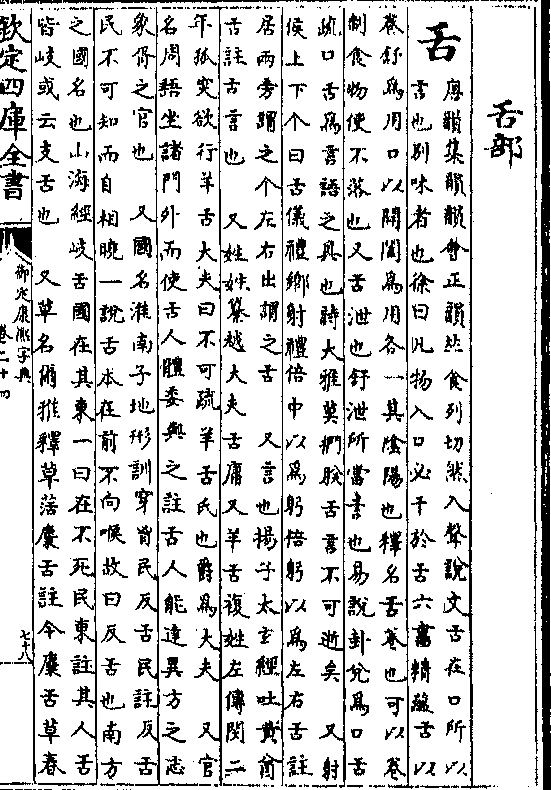 舌部
舌
唐韻集韻韻會正韻𠀤食列切然入聲說文舌在口所以
言也别味者也徐曰凡物入口必干於舌六書精蘊舌以
卷舒爲用口以開闔爲用各一其隂陽也釋名舌卷也可以卷
制食物使不落也又舌泄也舒泄所當言也易說卦兌爲口舌
疏口舌爲言語之具也詩大雅莫捫朕舌言不可逝矣 又射
侯上下个曰舌儀禮鄉射禮倍中以爲躬倍躬以爲左右舌註
居兩旁謂之个左右出謂之舌 又言也揚子太𤣥經吐黄酋
舌註舌言也 又姓姓纂越大夫舌庸又羊舌複姓左傳閔二
年狐突欲行羊舌大夫曰不可疏羊舌氏也爵爲大夫 又官
名周語坐諸門外而使舌人體委與之註舌人能達異方之志
象胥之官也 又國名淮南子地形訓穿胷民反舌民註反舌
民不可知而自相曉一說舌本在前不向喉故曰反舌也南方
之國名也山海經岐舌國在其東一曰在不死民東註其人舌
皆岐或云支舌也 又草名爾雅釋草蒤麋舌註今麋舌草春
欽定四庫全書
御定康熙字典
卷二十四
七十八